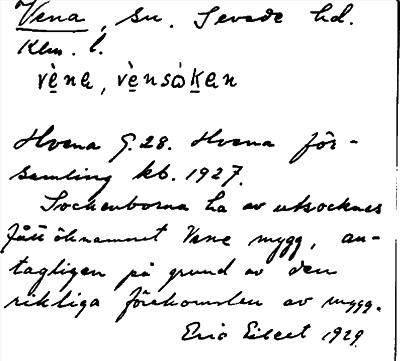 Vena, sn. Sevede hd.
Klm. l.
vè̱na, vè̱nsὼḵan
Hvena G. 28. Hvena för-
samling kb. 1927.
Sockenborna ha av utsocknes
fått öknamnet Vene mygg, an-
tagligen på grund av den
rikliga förekomsten av mygg.
Eric Elgert 1929